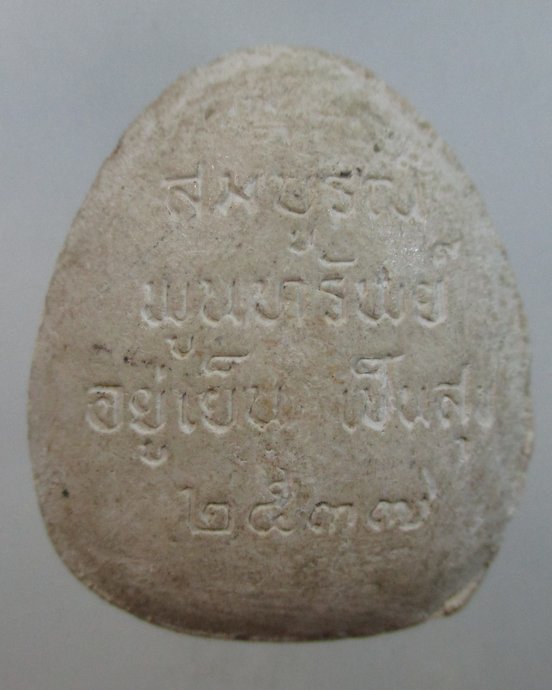 สมบูรณ์
พูนทรัพย์
อยู่เย็น เป็นสุข
๒๕๓๗